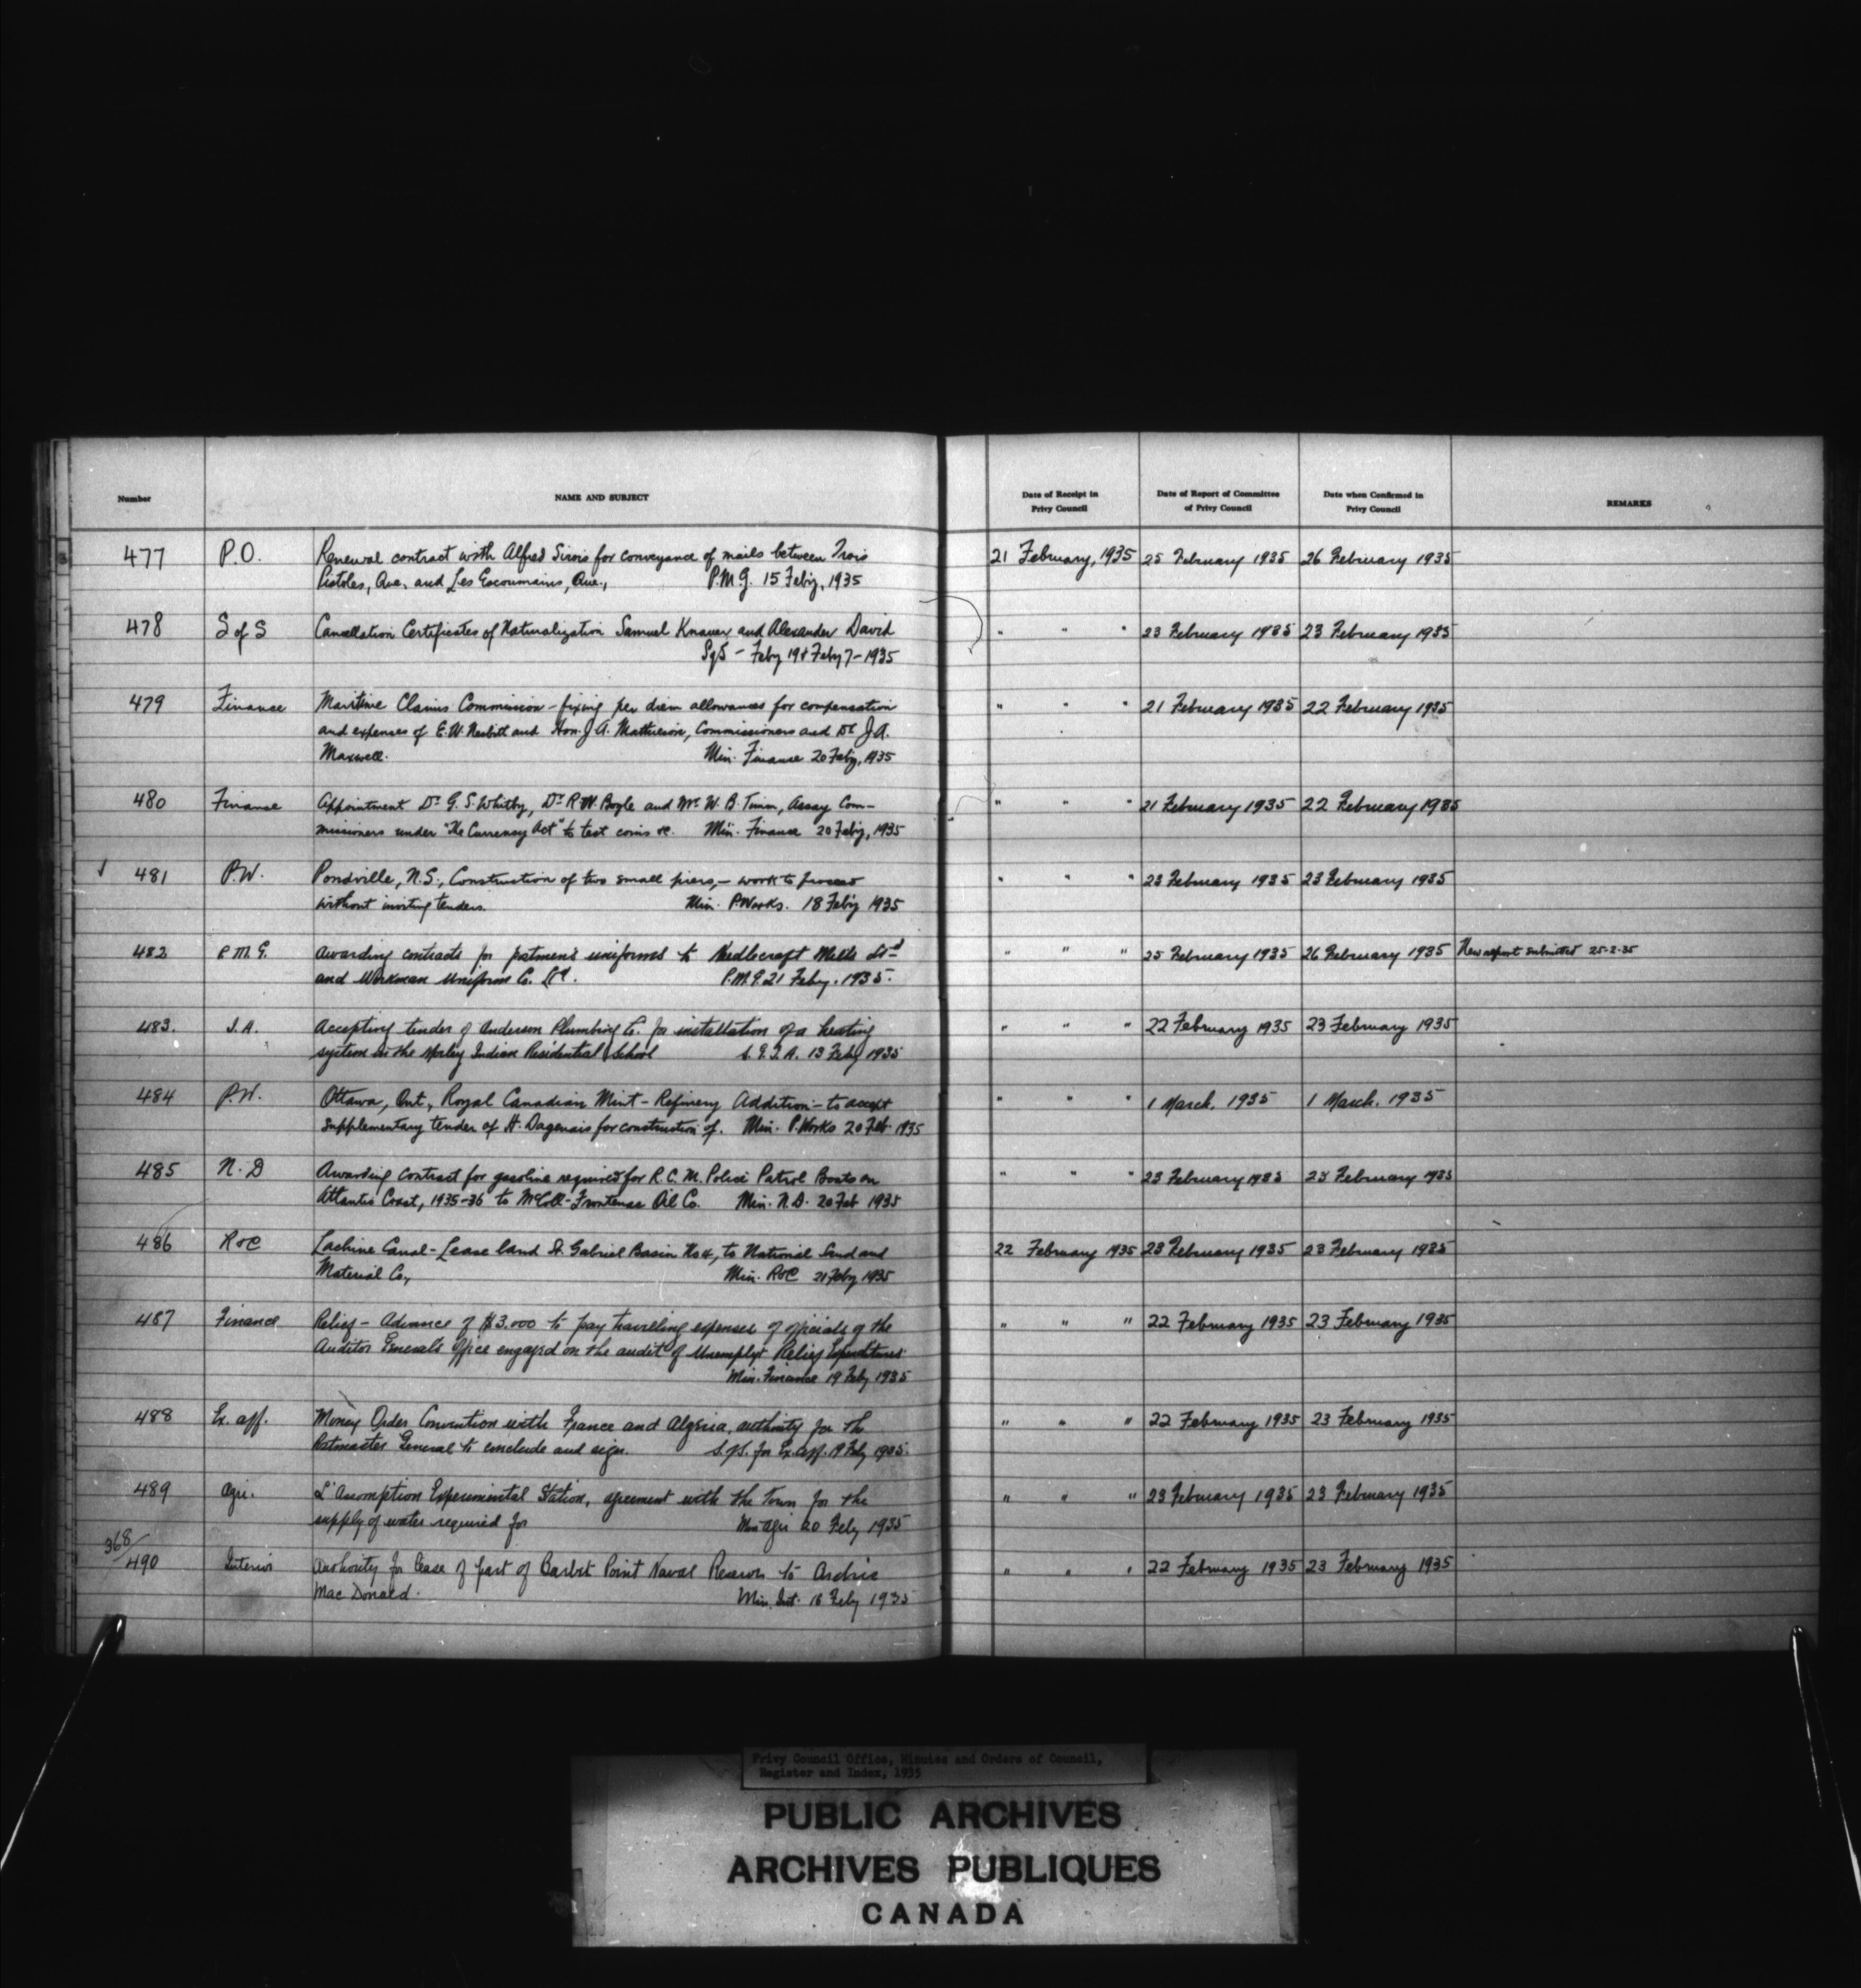 Number
NAME AND SUBJECT
Date of Receipt in
Privy Council
Date of Report of Committee
of Privy Council
Date when Confirmed in
Privy Council
REMARKS
477 P.O. Renewal contract with Alfred Sirois for conveyance of mails between Trois 21 February, 1935 25 February 1935 26 February 1935
Pistoles, Que. and Les Escoumains, Que., P.M.G. 15 Feby, 1935
478 S of S Cancellation Certificates of Naturalization Samuel Knauer and Alexander David " " " 23 February 1935 23 February 1935
SofS - Feby 19 & Feby 7 - 1935
479 Finance Maritime Claims Commission - fixing per diem allowances for compensation " " " 21 February 1935 22 February 1935
and expenses of E.W. Nesbitt and Hon. J.A. Mathieson, Commissioners and Dr J.A.
Maxwell. Min. Finance 20 Feby, 1935
480 Finance Appointment Dr G.S. Whitby, Dr R.W. Boyle and Mr W.B. Timm, Assay Com- " " " 21 February 1935 22 February 1935
missioners under "The Currency Act" to test coins &c. Min. Finance 20 Feby, 1935
481 P.W. Pondville, N.S., Construction of two small piers, - work to proceed " " " 23 February 1935 23 February 1935
without inviting tenders. Min. P.Works. 18 Feby 1935
482 P.M.G. Awarding contracts for postmen's uniforms to Needlecraft Mills Ltd " " " 25 February 1935 26 February 1935 New report submitted 25-2-35
and Workman Uniform Co. Ltd. P.M.G. 21 Feby. 1935.
483. I.A. Accepting tender of Anderson Plumbing Co. for installation of a heating " " " 22 February 1935 23 February 1935
system in the Morley Indian Residential School S.G.I.A. 13 Feby 1935
484 P.W. Ottawa, Ont, Royal Canadian Mint - Refinery Addition - to accept " " " 1 March, 1935 1 March. 1935
supplementary tender of H. Dagenais for construction of. Min. P.Works 20 Feb. 1935
485 N.D Awarding contract for gasoline required for R.C.M. Police Patrol Boats on " " " 23 February 1935 23 February 1935
Atlantic Coast, 1935-36 to McColl-Frontenac Oil Co. Min. N.D. 20 Feb 1935
486 R&C Lachine Canal - Lease land St. Gabriel Basin No 4, to National Sand and 22 February 1935 23 February 1935 23 February 1935
Material Co, Min. R&C 21 Feby 1935
487 Finance Relief - Advance of $3.000 to pay travelling expenses of officials of the " " " 22 February 1935 23 February 1935
Auditor General's Office engaged on the audit of Unemplyt Relief Expenditures
Min. Finance 19 Feby 1935
488 Ex. aff. Money Order Convention with France and Algeria, authority for the " " " 22 February 1935 23 February 1935
Postmaster General to conclude and sign. S.S. for Ex. aff. 19 Feby 1935.
489 Agri. L'Assomption Experimental Station, agreement with the Town for the " " " 23 February 1935 23 February 1935
supply of water required for Min Agri 20 Feby 1935
368/
490 Interior Authority for lease of part of Point Naval Reserve to Archie " " " 22 February 1935 23 February 1935
Mac Donald. Min. Int. 16 Feby 1935
Privy Council Office, Minutes and Orders of Council,
Register and Index, 1935
PUBLIC ARCHIVES
ARCHIVES PUBLIQUES
CANADA